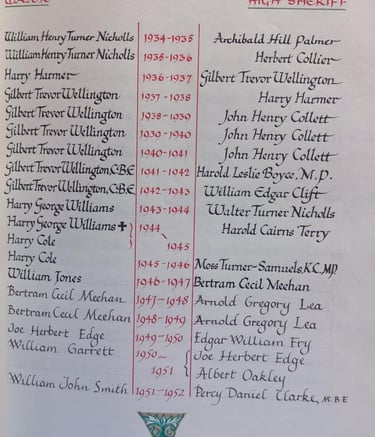 MAYOR HIGH SHERIFF
William Henry Turner Nicholls 1934-1935 Archibald Hill Palmer
William Henry Turner Nicholls 1935-1936 Herbert Collier
Harry Harmer 1936-1937 Gilbert Trevor Wellington
Gilbert Trevor Wellington 1937-1938 Harry Harmer
Gilbert Trevor Wellington 1938-1939 John Henry Collett
Gilbert Trevor Wellington 1939-1940 John Henry Collett
Gilbert Trevor Wellington 1940-1941 John Henry Collett
Gilbert Trevor Wellington, C.B.E 1941-1942 Harold Leslie Boyce, M.P.
Gilbert Trevor Wellington, C.B.E 1942-1943 William Edgar Clift
Harry George Williams 1943-1944 Walter Turner Nicholls
Harry George Williams ✝ 1944 Harold Cairns Terry
Harry Cole 1945
Harry Cole 1945-1946 Moss Turner-Samuels, K.C. M.P.
William Jones 1946-1947 Bertram Cecil Meehan
Bertram Cecil Meehan 1947-1948 Arnold Gregory Lea
Bertram Cecil Meehan 1948-1949 Arnold Gregory Lea
Joe Herbert Edge 1949-1950 Edgar William Fry
William Garrett 1950- Joe Herbert Edge
1951 Albert Oakley
William John Smith 1951-1952 Percy Daniel Clarke, M.B.E